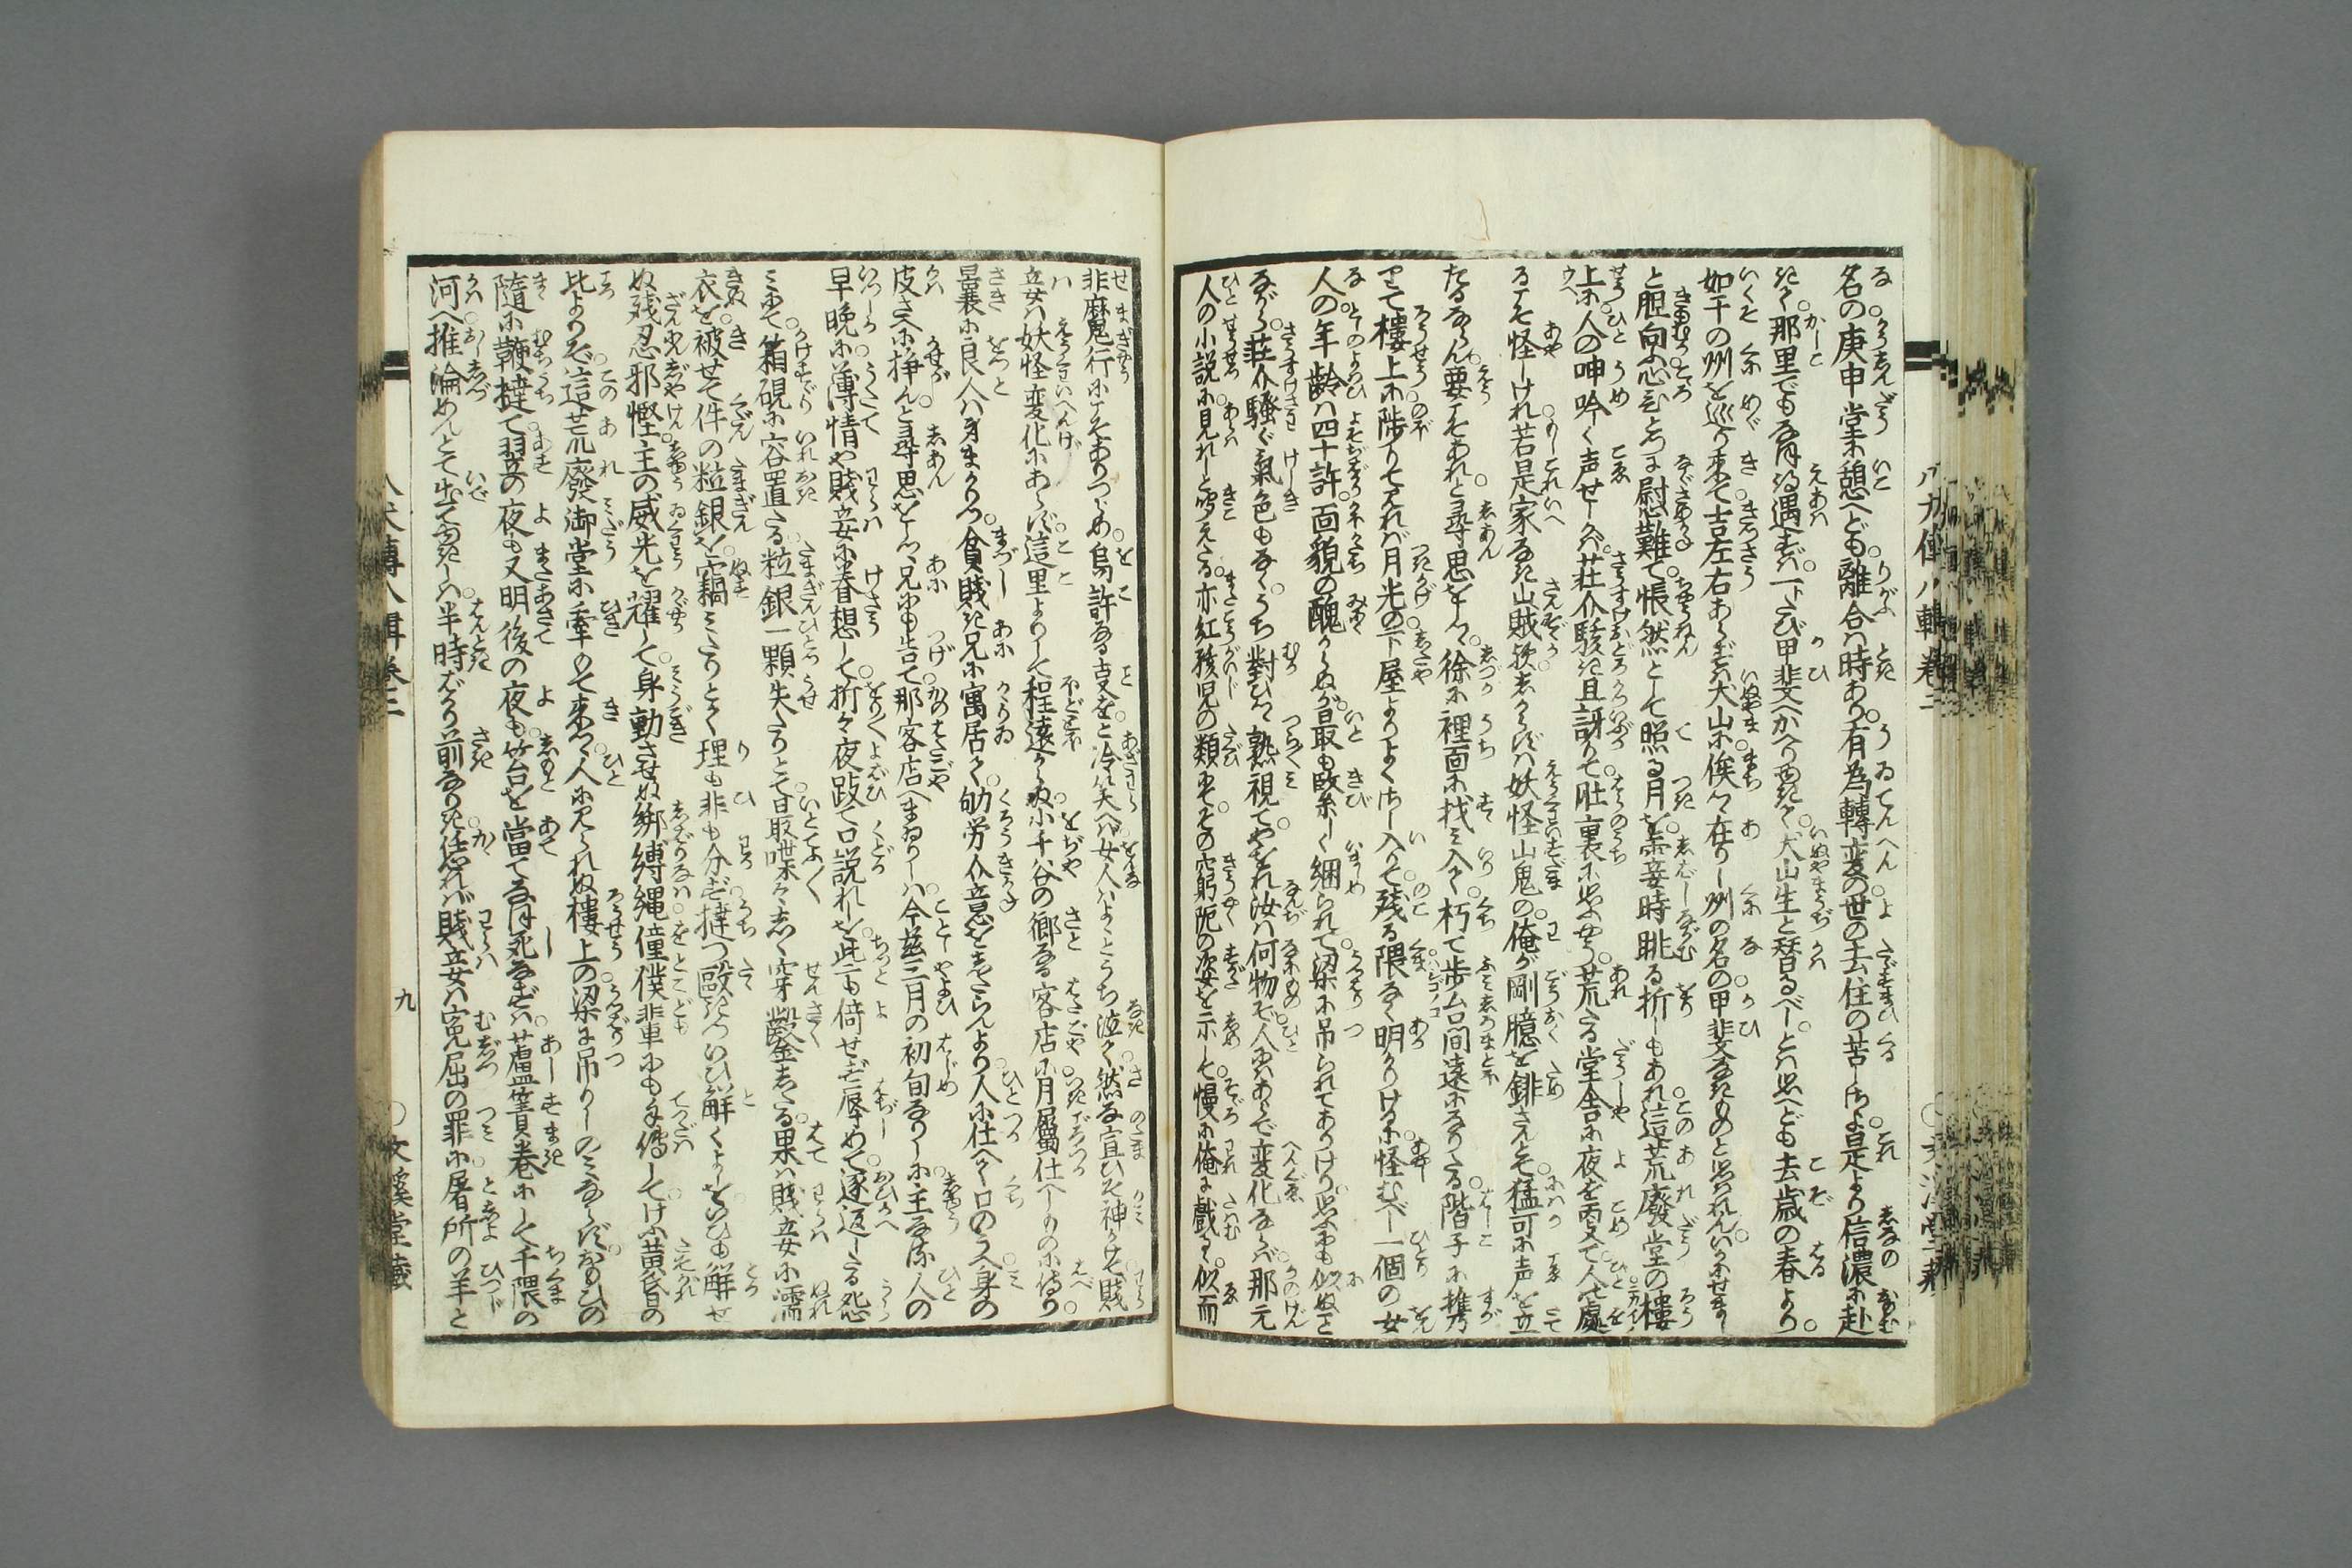 名の庚申堂に憩へども離合は時あり有為轉変の世の去住の苦しさよ是より信濃に赴
きて那里でもなほ得遇ずは一トたび甲斐へかへり西きて犬山生と替るべしとは思へども去歳の春より
如千の州を巡り来て吉左右あらずは犬山に俟して在りし州の名の甲斐なきものと思はれんいかにせまし
と胆向ふ心ひとつを慰め難て悵然として照る月を霎時眺る折しもあれ這荒廢堂の樓
上に人の呻吟く声せしかば荘介駭き且訝りて肚裏に思ふやう荒たる堂舎に夜を丙て人も處
るこそ怪しけれ若是家なき山賊歟しからずは妖怪山魅の俺が剛臆を鋳さんとて猛可に声を立
たるならん要こそあれと尋思をしつ徐に裡面に找み入りて朽て歩台間遠になりたる階子に携り
て樓上に陟りて見れば月光の下屋よりよくさし入りて残る隈なく明かりけるに怪むべし一個の女
人の年齢は四十許面貌の醜からぬが最も緊しく綑られて梁に吊られてありけり思ふにも似ぬこと
ながら荘介騒ぐ氣色もなくうち對ひつ熟視てやをれ汝は何物ぞ人にはあらで変化ならば那元
人の小説に見れしと聞えたる亦紅孩児の類にてその窮阨の姿を示して慢に俺を戯るゝ似而
非魔行にこそありつらめ烏許なる㕝をと冷笑へば女人はよゝとうち泣て然な宣ひそ神かけて賤
妾は妖怪変化にあらず這里よりして程遠からぬ小千谷の郷なる客店に月屬仕へしものに侍り
曩に良人は身まかりつ貧賤き兄に寓居て劬労介意をせらんより人に仕へて口のうへ身の
皮さへに挣んと尋思をしつ兄にも告て那客店へまゐりしは今茲三月の初旬なりしに主なる人の
早晩に薄情や賤妾に眷想して折々夜跂て口説れしを此も倚せず辱めて逐返したる怨
にて箱硯に容置たる粒銀一顆失たりとて最喋々しく穿鑿したる果は賤妾に濡
衣を被せて件の粒銀を竊みたりとて理も非も分ず撻つ毆きついひ解くよしをいひも解せ
ぬ残忍邪慳主の威光を耀して身動させぬ綁縛縄僮僕輩にも手傳してけふ黄昏の
比よりぞ這荒廢御堂に牽もて来つ人に見られぬ樓上の梁に吊りしのみならずおもひの
随に鞭撻て翌の夜も又明後の夜も笞を當てなほ死なずは蘆簀巻にして千隈の
河へ推淪めんとて出て去きしは半時ばかり前なりき恁れば賤妾は寃屈の罪に屠所の羊と
八犬傳八輯巻三
九
文溪堂藏